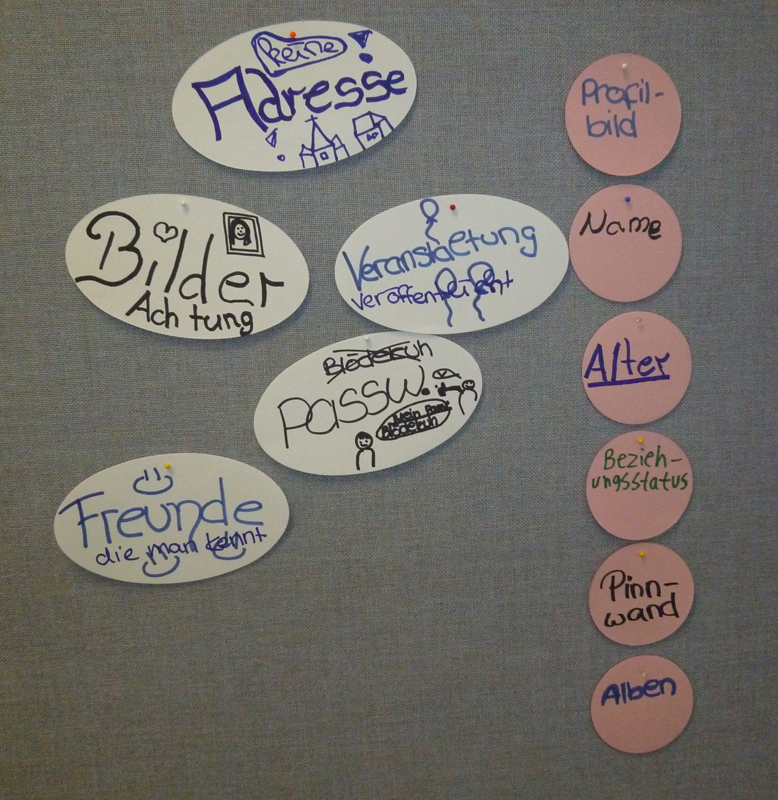 keine
Adresse
Bilder
Achtung
Veranstaltung
veröffentlicht
Blödekuh
passw.
Mein Passw
Blödekuh
Freunde
die man kennt
Profil-
bild
Name
Alter
Bezieh-
ungsstatus
Pinn-
wand
Alben